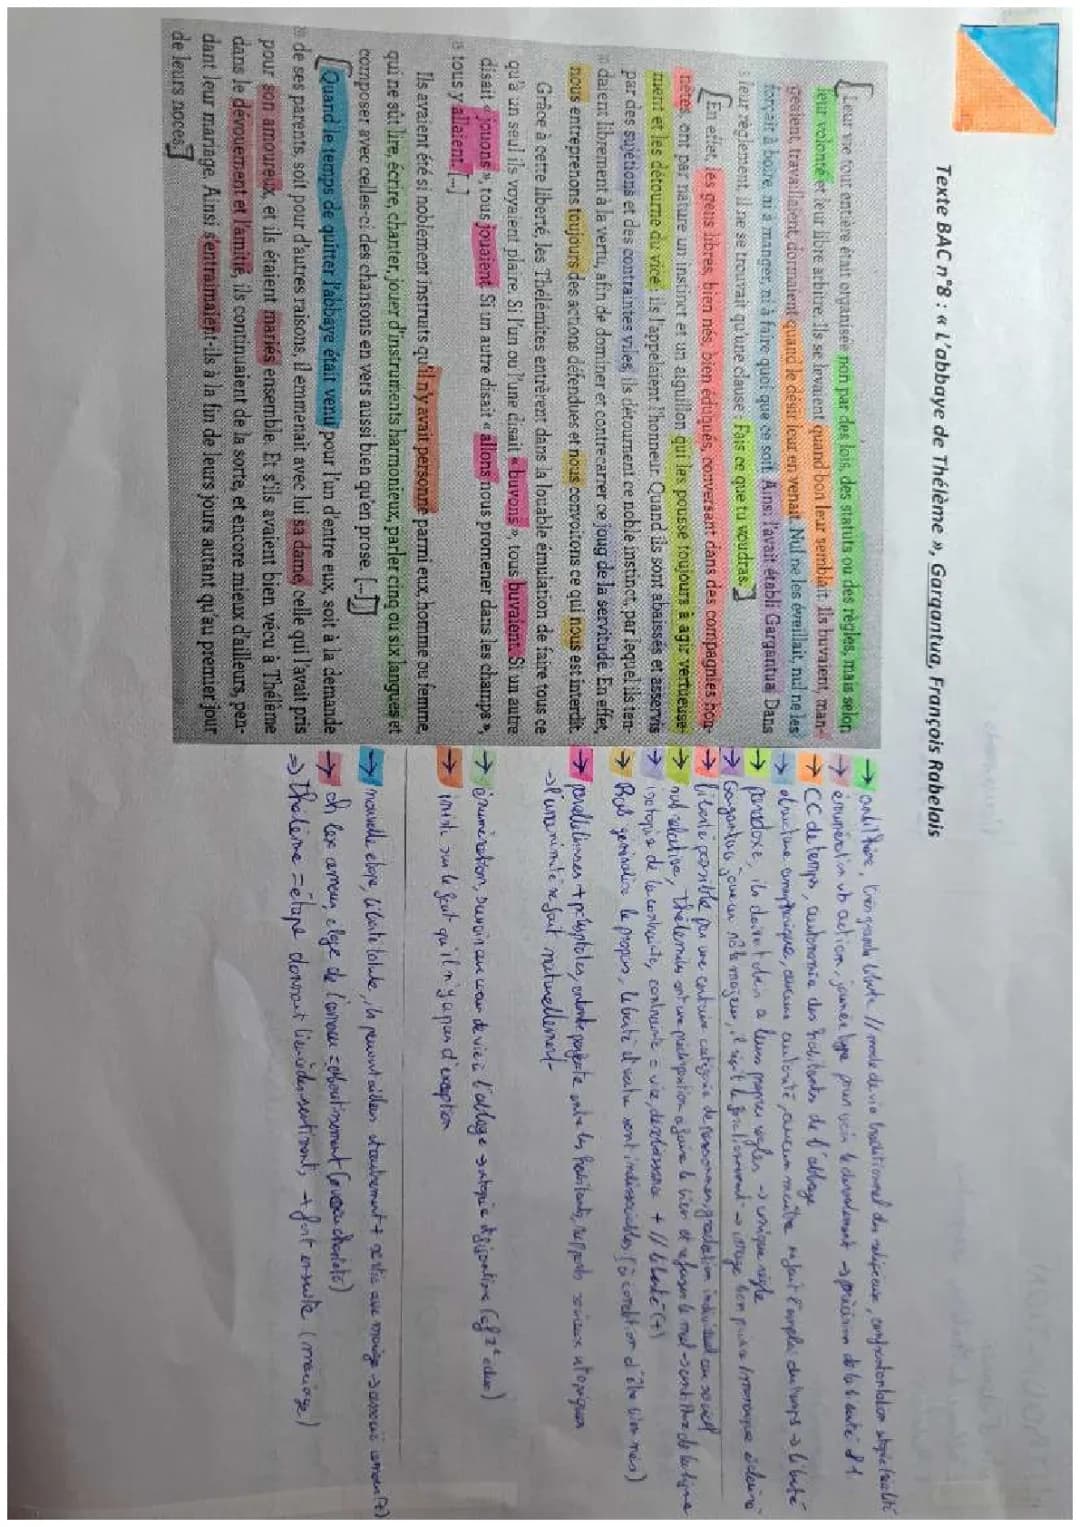 Texte BAC n°8 : « L'abbaye de Thélème », Gargantua, François Rabelais
[Leur vie tout entière était organisée non par des lois, des statuts ou des règles, mais selon
leur volonté et leur libre arbitre. Ils se levaient quand bon leur semblait. Ils buvaient, man-
geaient, travaillaient, dormaient quand le désir leur en venait. Nul ne les éveillait, nul ne les
forçait à boire, ni à manger, ni à faire quoi que ce soit. Ainsi l'avait établi Gargantua. Dans
5 leur règlement, il ne se trouvait qu'une clause : Fais ce que tu voudras.]
[En effet, les gens libres, bien nés, bien éduqués, conversant dans des compagnies hon-
nêtes, ont par nature un instinct et un aiguillon qui les pousse toujours à agir vertueuse-
ment et les détourne du vice ; ils l'appelaient l'honneur. Quand ils sont abaissés et asservis
par des sujétions et des contraintes viles, ils détournent ce noble instinct, par lequel ils ten-
10 daient librement à la vertu, afin de dominer et contrecarrer ce joug de la servitude. En effet,
nous entreprenons toujours des actions défendues et nous convoitons ce qui nous est interdit.
Grâce à cette liberté, les Thélémites entrèrent dans la louable émulation de faire tous ce
qu'à un seul ils voyaient plaire. Si l'un ou l'une disait « buvons », tous buvaient. Si un autre
disait « jouons », tous jouaient. Si un autre disait « allons nous promener dans les champs »,
15 tous y allaient. [...]
Ils avaient été si noblement instruits qu'il n'y avait personne parmi eux, homme ou femme,
qui ne sût lire, écrire, chanter, jouer d'instruments harmonieux, parler cinq ou six langues et
composer avec celles-ci des chansons en vers aussi bien qu'en prose. [...]]
[Quand le temps de quitter l'abbaye était venu pour l'un d'entre eux, soit à la demande
20 de ses parents, soit pour d'autres raisons, il emmenait avec lui sa dame, celle qui l'avait pris
pour son amoureux, et ils étaient mariés ensemble. Et s'ils avaient bien vécu à Thélème
dans le dévouement et l'amitié, ils continuaient de la sorte, et encore mieux d'ailleurs, pen-
dant leur mariage. Ainsi s'entraimaient-ils à la fin de leurs jours autant qu'au premier jour
de leurs noces.]
→ antithèse, très grande liberté // mode de vie traditionnel des religieux, confrontation utopie/réalité
→ énumération vb action, journée type pour voir le déroulement → précision de la liberté
→ CC de temps, autonomie des habitants de l'abbaye
→ structure anaphorique, aucune autorité, aucun maître → liberté
→ paradoxe, ils doivent obéir à leurs propres règles → unique règle
→ Gargantua joue un rôle majeur, il régit le fonctionnement → image bon prince/monarque éclairé
→ liberté possible pour une certaine catégorie de personnes, gradation
→ Thélémites ont une prédisposition à faire le bien et refuser le mal
→ isotopie de la contrainte, contrainte = vice, // liberté (+)
→ Rab généralise le propos, liberté et vertu sont indissociables (à condition d'être bien nés)
→ parallélismes + polyptotes, entente parfaite entre les habitants, rapports sociaux utopiques
→ l'unanimité se fait naturellement
→ énumération, savoir au cœur de vie à l'abbaye → utopie
→ insiste sur le fait qu'il n'y a pas d'exception
→ nouvelle étape, liberté totale, ils peuvent
→ ch lex amour, éloge de l'amour = aboutissement
=> Thélème = étape donnant lieu à des sentiments